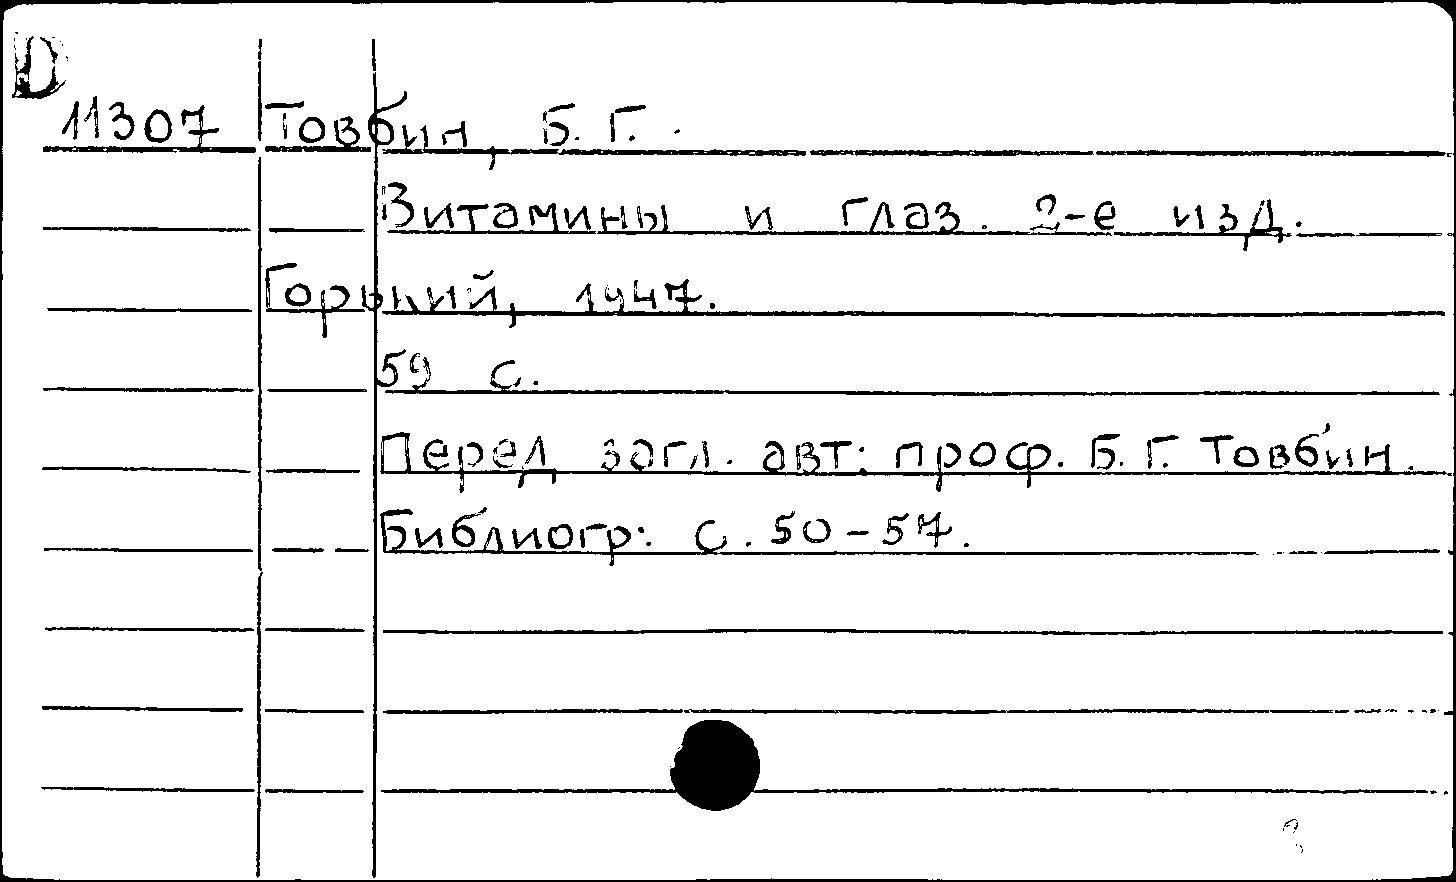 D
11307 Товбин, Б. Г.
Витамины и глаз. 2-е изд.
Горький, 1947.
59 с.
Перед загл. авт: проф. Б. Г. Товбин.
Библиогр: с. 50-57.